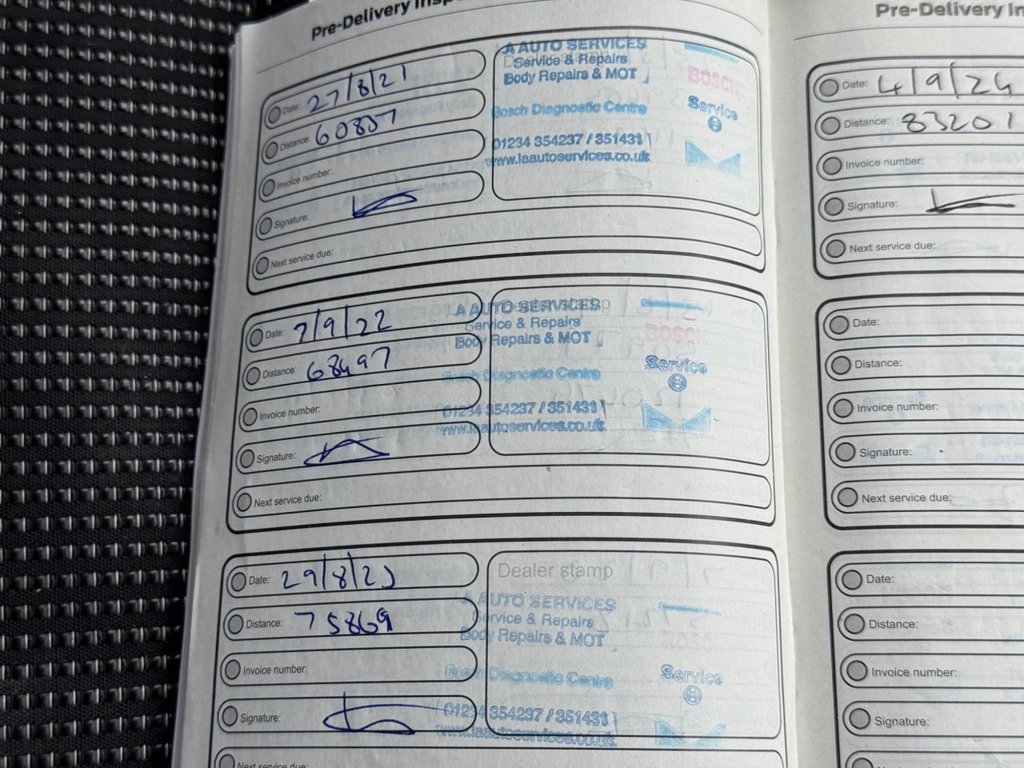 Pre-Delivery
Date: 27/8/21
Distance: 60857
Invoice number:
Signature:
Next service due:
A AUTO SERVICES
Service & Repairs
Body Repairs & MOT
Bosch Diagnostic Centre
01234 354237 / 351431
www.laautoservices.co.uk
Service
Date: 7/9/22
Distance: 68497
Invoice number:
Signature:
Next service due:
LA AUTO SERVICES
Service & Repairs
Body Repairs & MOT
Bosch Diagnostic Centre
01234 354237 / 351431
www.laautoservices.co.uk
Service
Date: 29/8/23
Distance: 75869
Invoice number:
Signature:
Next service due:
Dealer stamp
A AUTO SERVICES
Service & Repairs
Body Repairs & MOT
Bosch Diagnostic Centre
01234 354237 / 351431
www.laautoservices.co.uk
Service
Pre-Delivery
Date: 4/9/24
Distance: 83201
Invoice number:
Signature:
Next service due:
Date:
Distance:
Invoice number:
Signature:
Next service due:
Date:
Distance:
Invoice number:
Signature: